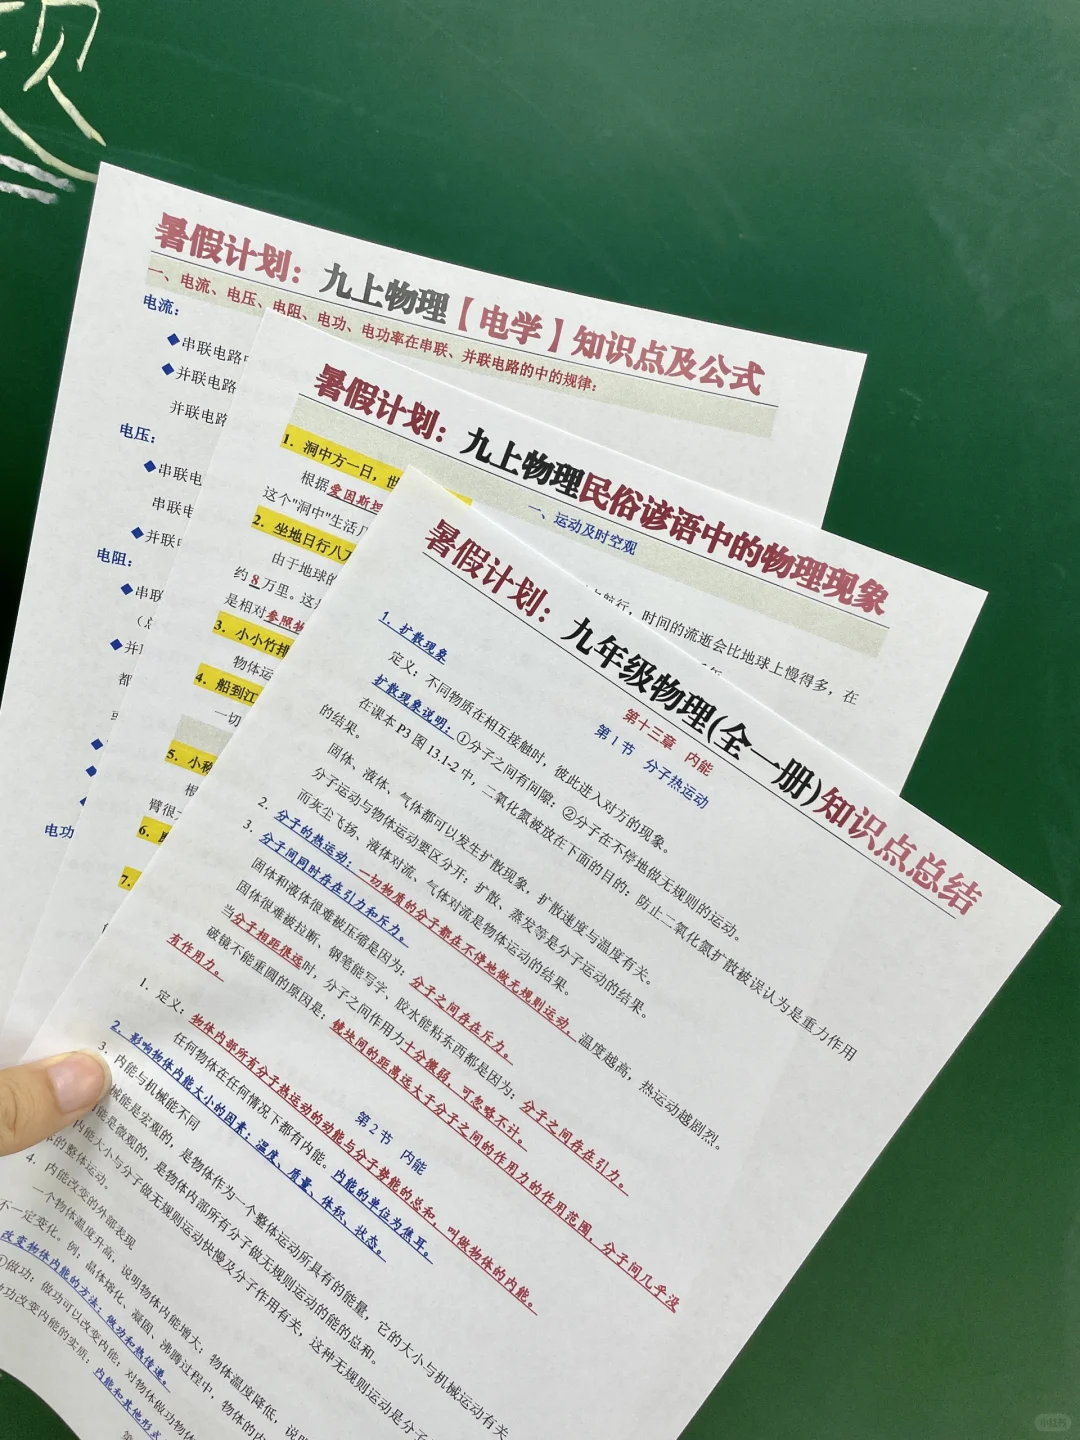 暑假计划：九上物理【电学】知识点及公式
一、电流、电压、电阻、电功、电功率在串联、并联电路的中的规律：
电流：
◆串联电路中
◆并联电路
并联电路
电压：
◆串联电
串联电
◆并联
电阻：
◆串联
◆并
都
电功
暑假计划：九上物理民俗谚语中的物理现象
一、运动及时空观
1. 洞中方一日，世
根据爱因斯坦
航行，时间的流逝会比地球上慢得多，在
这个"洞中"生活几
2. 坐地日行八万
由于地球的
约8万里。这
是相对参照物
3. 小小竹排
物体运
4. 船到江
一切
5. 小称
根
臂很
6.
7.
暑假计划：九年级物理(全一册)知识点总结
第十三章 内能
第1节 分子热运动
1. 扩散现象
定义：不同物质在相互接触时，彼此进入对方的现象。
扩散现象说明：①分子之间有间隙；②分子在不停地做无规则的运动。
在课本P3图13.1-2中，二氧化氮被放在下面的目的：防止二氧化氮扩散被误认为是重力作用
的结果。
固体、液体、气体都可以发生扩散现象，扩散速度与温度有关。
分子运动与物体运动要区分开：扩散、蒸发等是分子运动的结果。
而灰尘飞扬、液体对流、气体对流是物体运动的结果。
2. 分子的热运动：一切物质的分子都在不停地做无规则运动，温度越高，热运动越剧烈。
3. 分子间同时存在引力和斥力。
固体和液体很难被压缩是因为：分子之间存在斥力。
固体很难被拉断、钢笔能写字、胶水能粘东西都是因为：分子之间存在引力。
当分子相距很远时，分子之间作用力十分微弱，可忽略不计。
破镜不能重圆的原因是：镜块间的距离远大于分子之间的作用力的作用范围，分子间几乎没
有作用力。
第2节 内能
1. 定义：物体内部所有分子热运动的动能与分子势能的总和，叫做物体的内能。
任何物体在任何情况下都有内能。内能的单位为焦耳。
2. 影响物体内能大小的因素：温度、质量、体积、状态。
3. 内能与机械能不同
械能是宏观的，是物体作为一个整体运动所具有的能量，它的大小与机械运动有关
能是微观的，是物体内部所有分子做无规则运动的能的总和。
内能大小与分子做无规则运动快慢及分子作用有关，这种无规则运动是分子
体的整体运动。
4. 内能改变的外部表现
一个物体温度升高，说明物体内能增大；物体温度降低，说
不一定变化。例：晶体熔化、凝固、沸腾过程中，物体的内
改变物体内能的方法：做功和热传递。
①做功：做功可以改变内能：对物体做功物体
功改变内能的实质：内能和其他形式